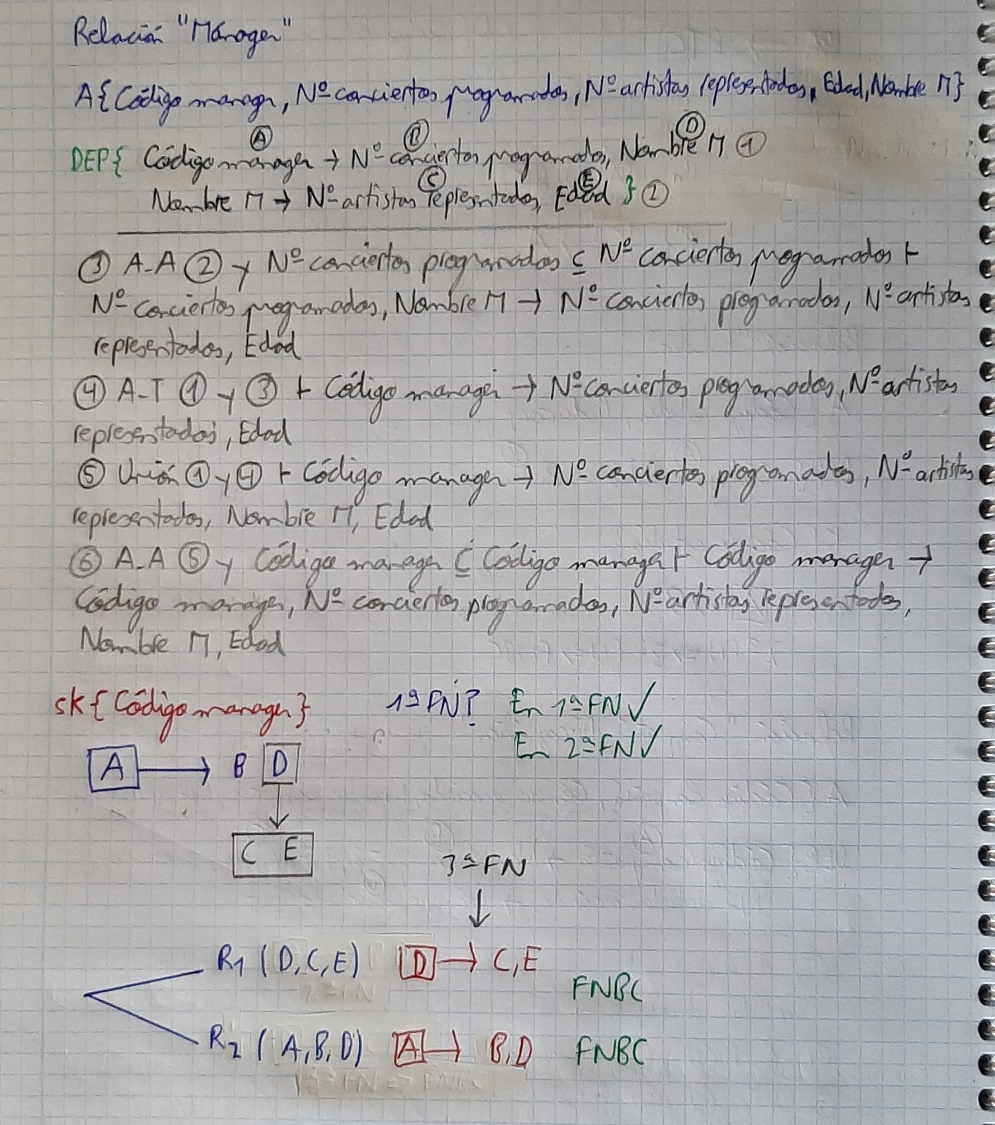 Relación "Mánager"
A{Código manager, Nº conciertos programados, Nº artistas representados, Edad, Nombre M}
A B D
DEP{ Código manager → Nº conciertos programados, Nombre M ①
C E
Nombre M → Nº artistas representados, Edad } ②
③ A-A ② y Nº conciertos programados ⊆ Nº conciertos programados ⊢
Nº conciertos programados, Nombre M → Nº conciertos programados, Nº artistas
representados, Edad
④ A-T ① y ③ ⊢ Código manager → Nº conciertos programados, Nº artistas
representados, Edad
⑤ Unión ① y ④ ⊢ Código manager → Nº conciertos programados, Nº artistas
representados, Nombre M, Edad
⑥ A-A ⑤ y Código manager ⊆ Código manager ⊢ Código manager →
Código manager, Nº conciertos programados, Nº artistas representados,
Nombre M, Edad
sk{Código manager} 1ª FN? En 1ª FN ✓
En 2ª FN ✓
A → B D
↓
C E
3ª FN
↓
R1 (D, C, E) D → C, E
FNBC
R2 (A, B, D) A → B, D FNBC